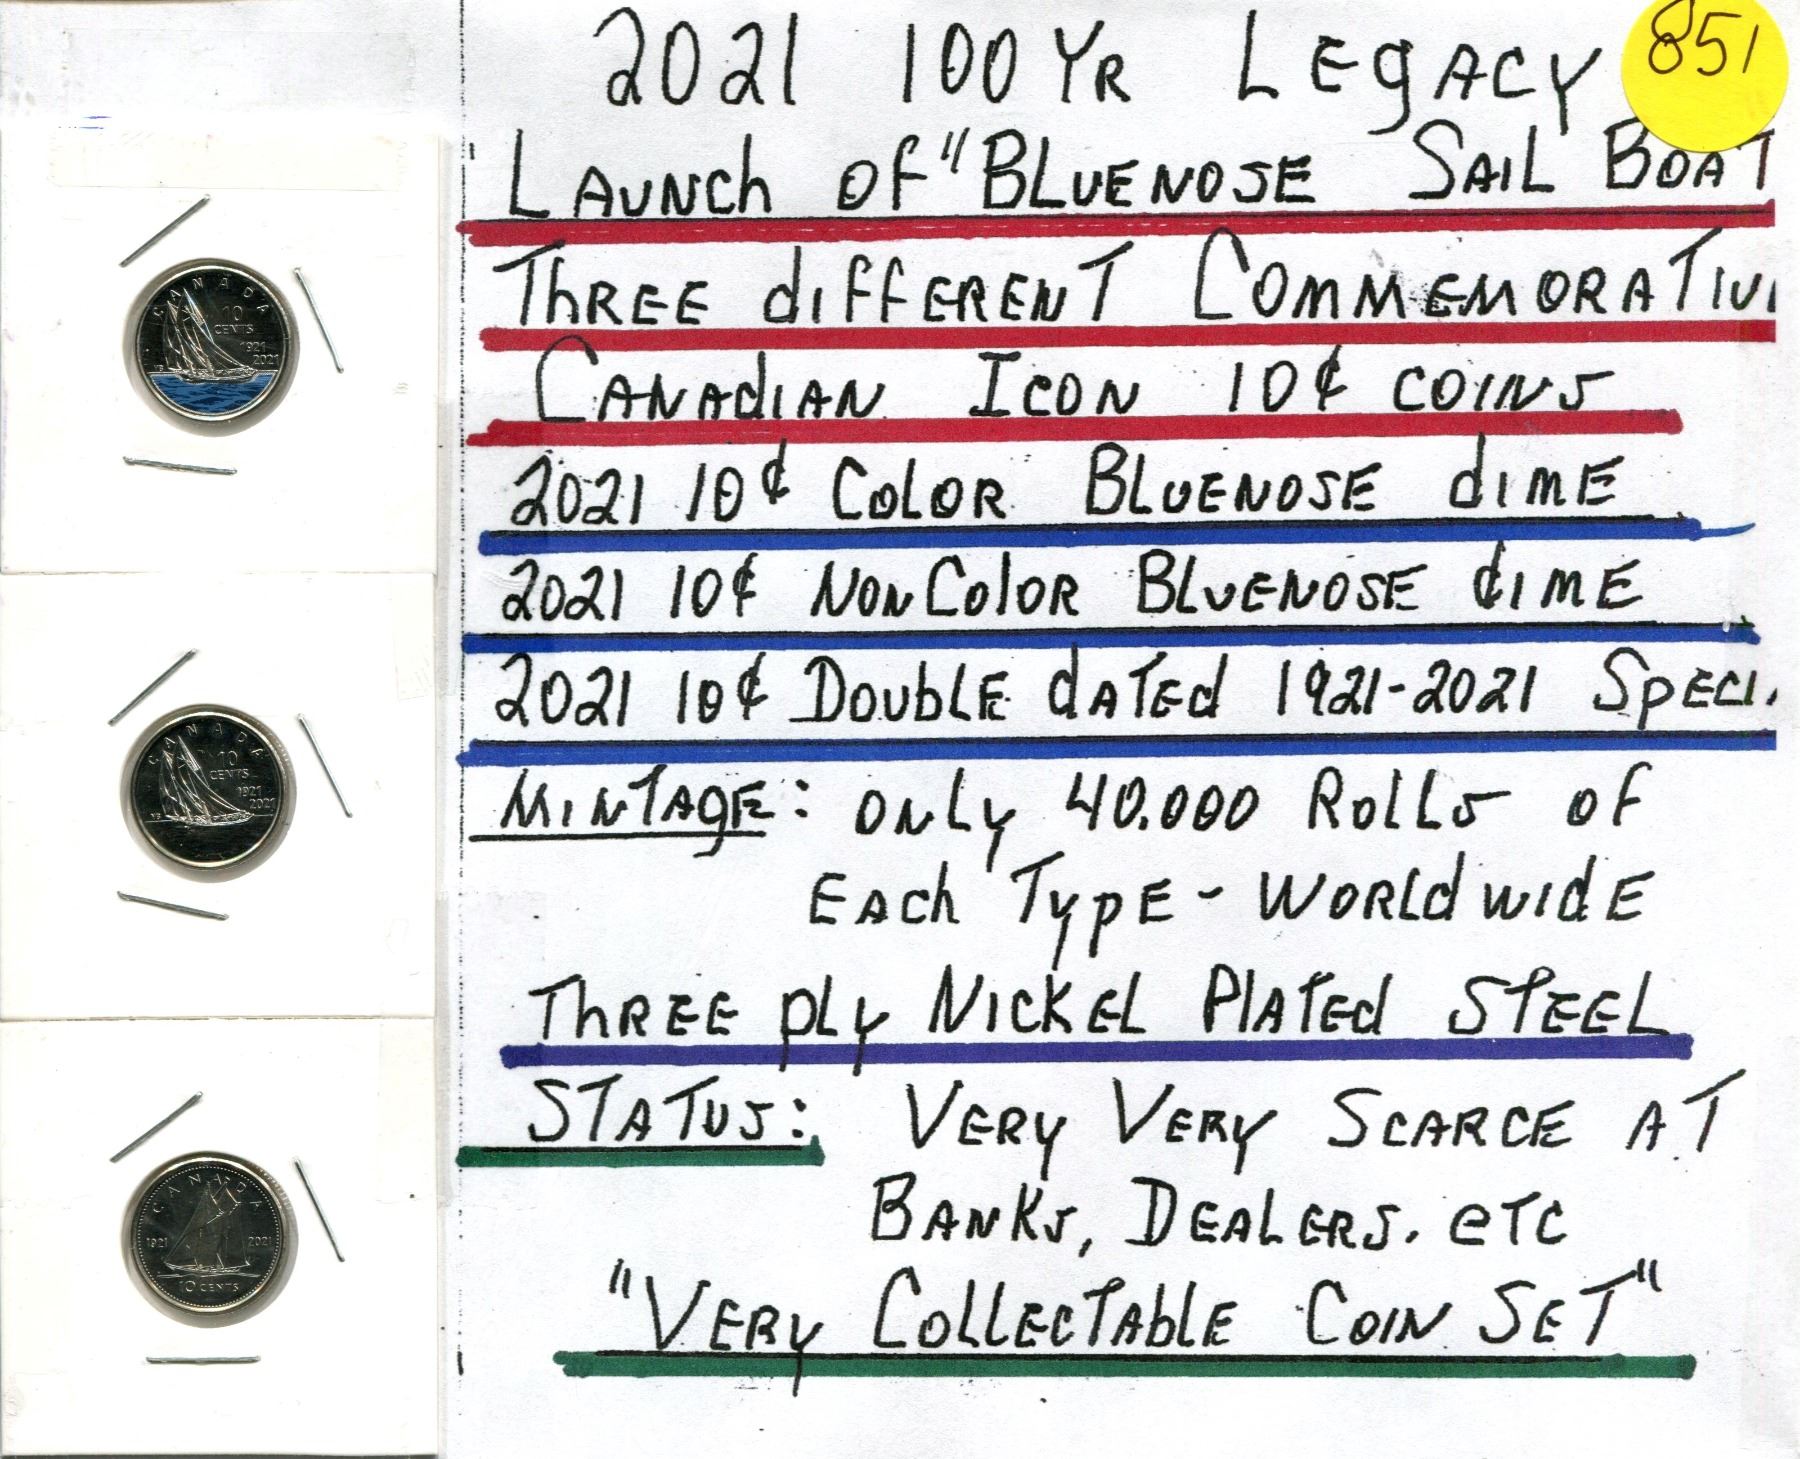 851
2021 100 YR LEgACY
LAUNCh OF "BLUENOSE SAIL BOAT
ThREE diFFERENT COMMEMORATIV
CANAdIAN ICON 10¢ COINS
2021 10¢ COLOR BLUENOSE dIME
2021 10¢ NONCOLOR BLUENOSE dIME
2021 10¢ DOUBLE dATEd 1921-2021 SPECI
MINTAgE: ONLY 40.000 ROLLS OF
EACh TYPE - WORLd WIdE
ThREE PLY NICKEL PLATEd STEEL
STATUS: VERY VERY SCARCE AT
BANKS, DEALERS. eTC
"VERY COLLECTAbLE COIN SET"
CANADA
10
CENTS
1921
2021
CANADA
10
CENTS
1921
2021
CANADA
1921 2021
10 CENTS